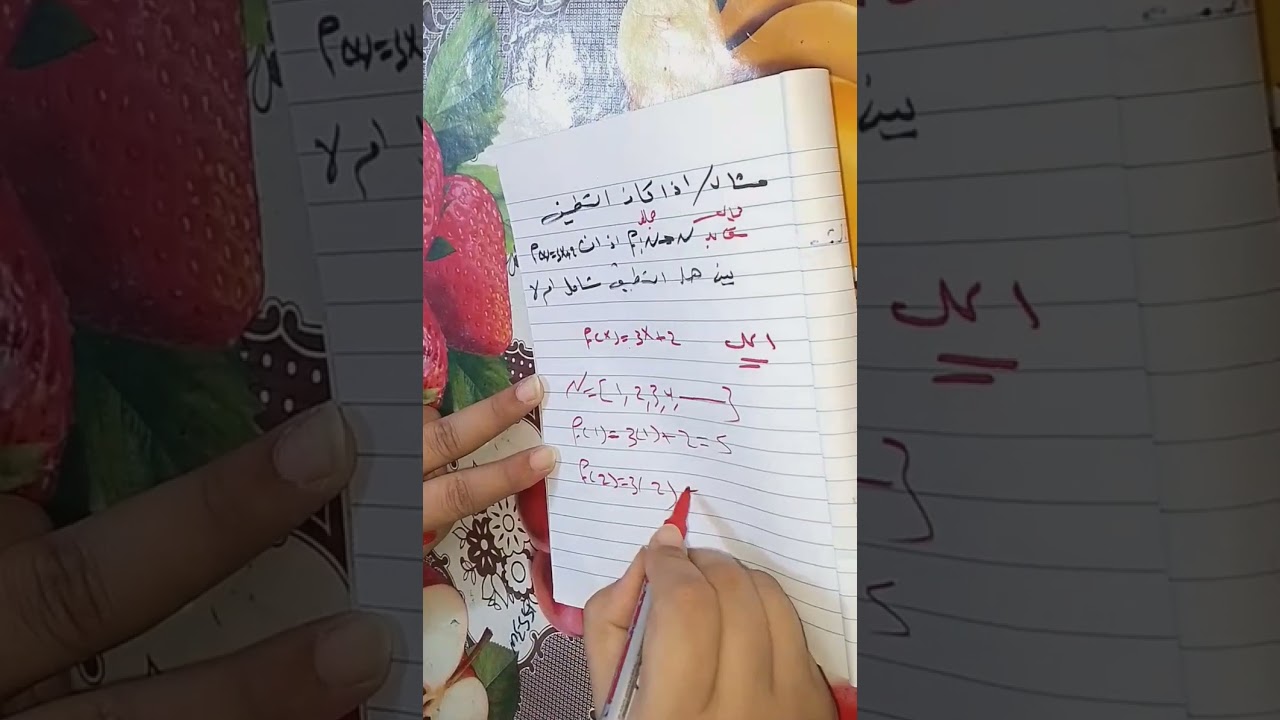 مثال/ اذا كان التطبيق
f:N→N اذ ان f(x)=3x+2
مجال
مجال مقابل
بين هل التطبيق شامل ام لا
الحل
f(x)=3x+2
N={1,2,3,4,——}
f(1)=3(1)+2=5
f(2)=3(2)